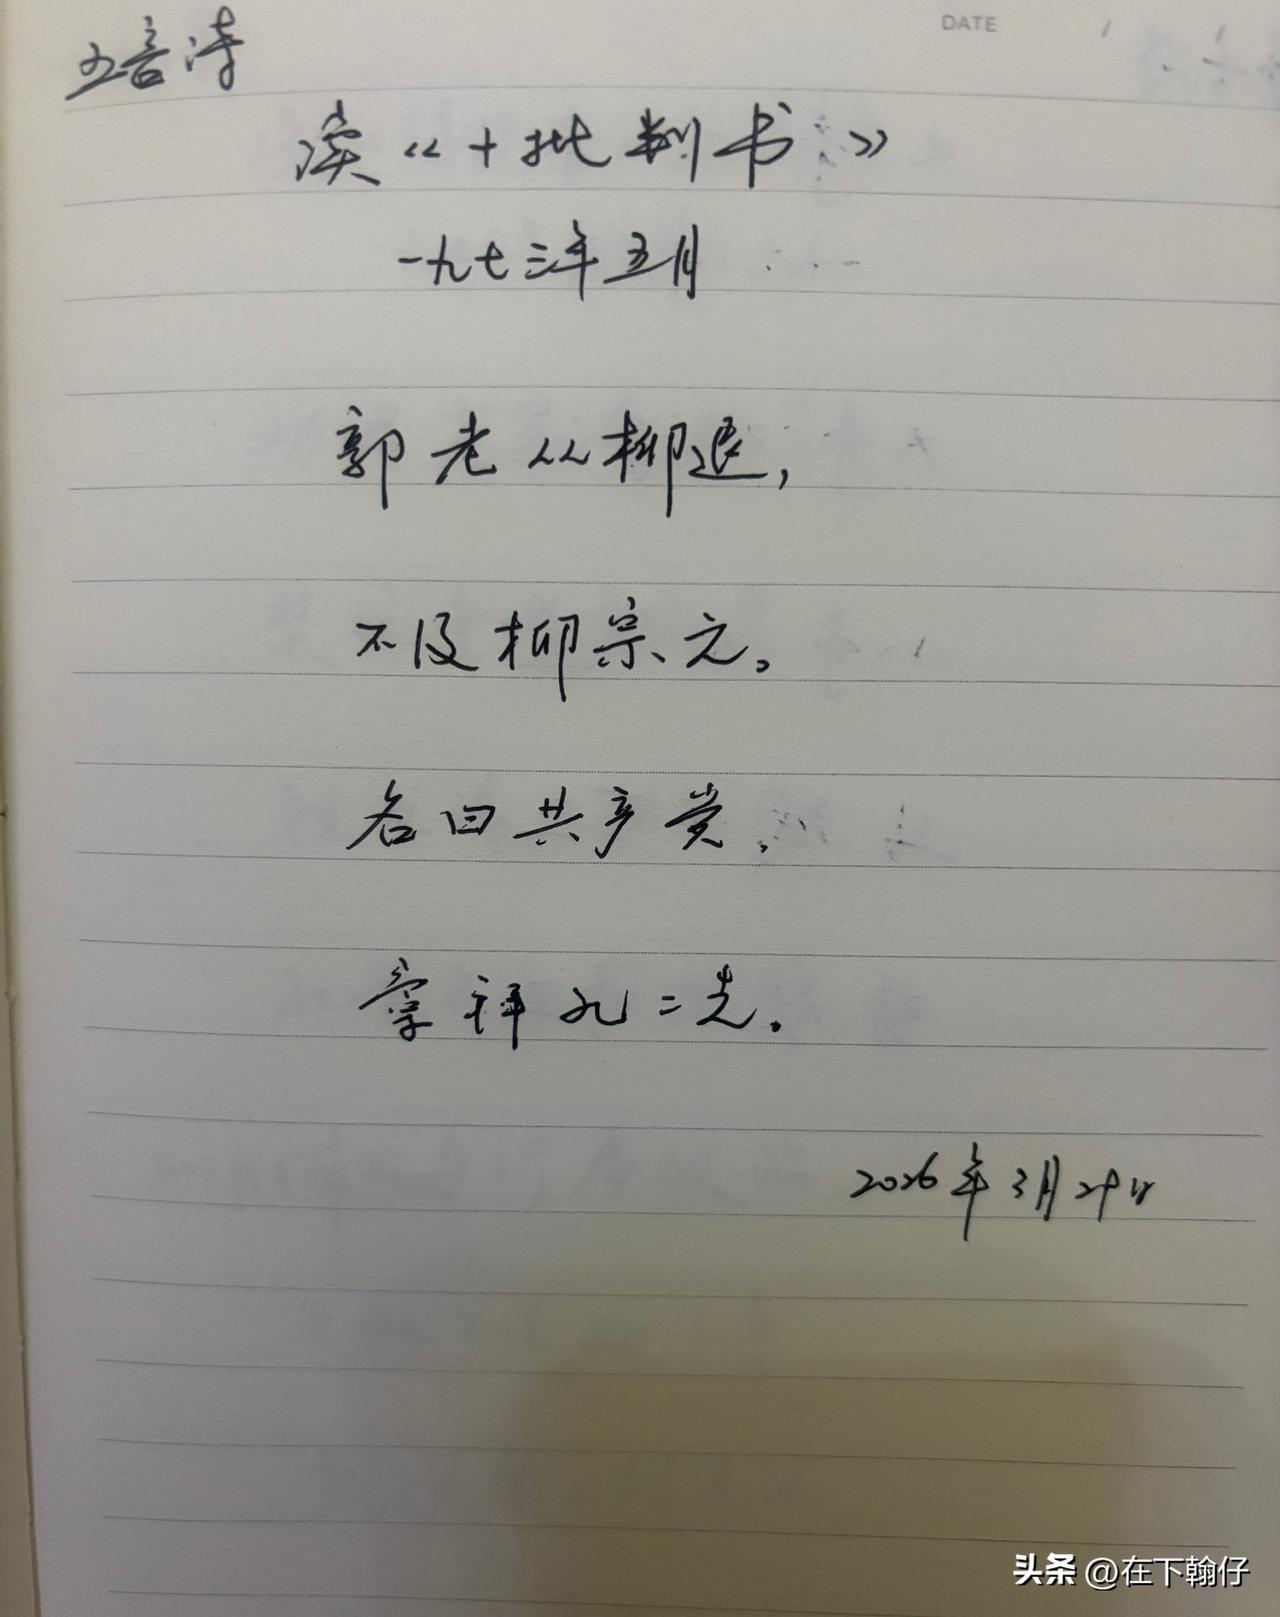 五言诗
DATE
读《十批判书》
一九七三年五月
郭老从柳退，
不及柳宗元。
名曰共产党，
崇拜孔二先。
2026年3月29日
头条 @在下翰仔